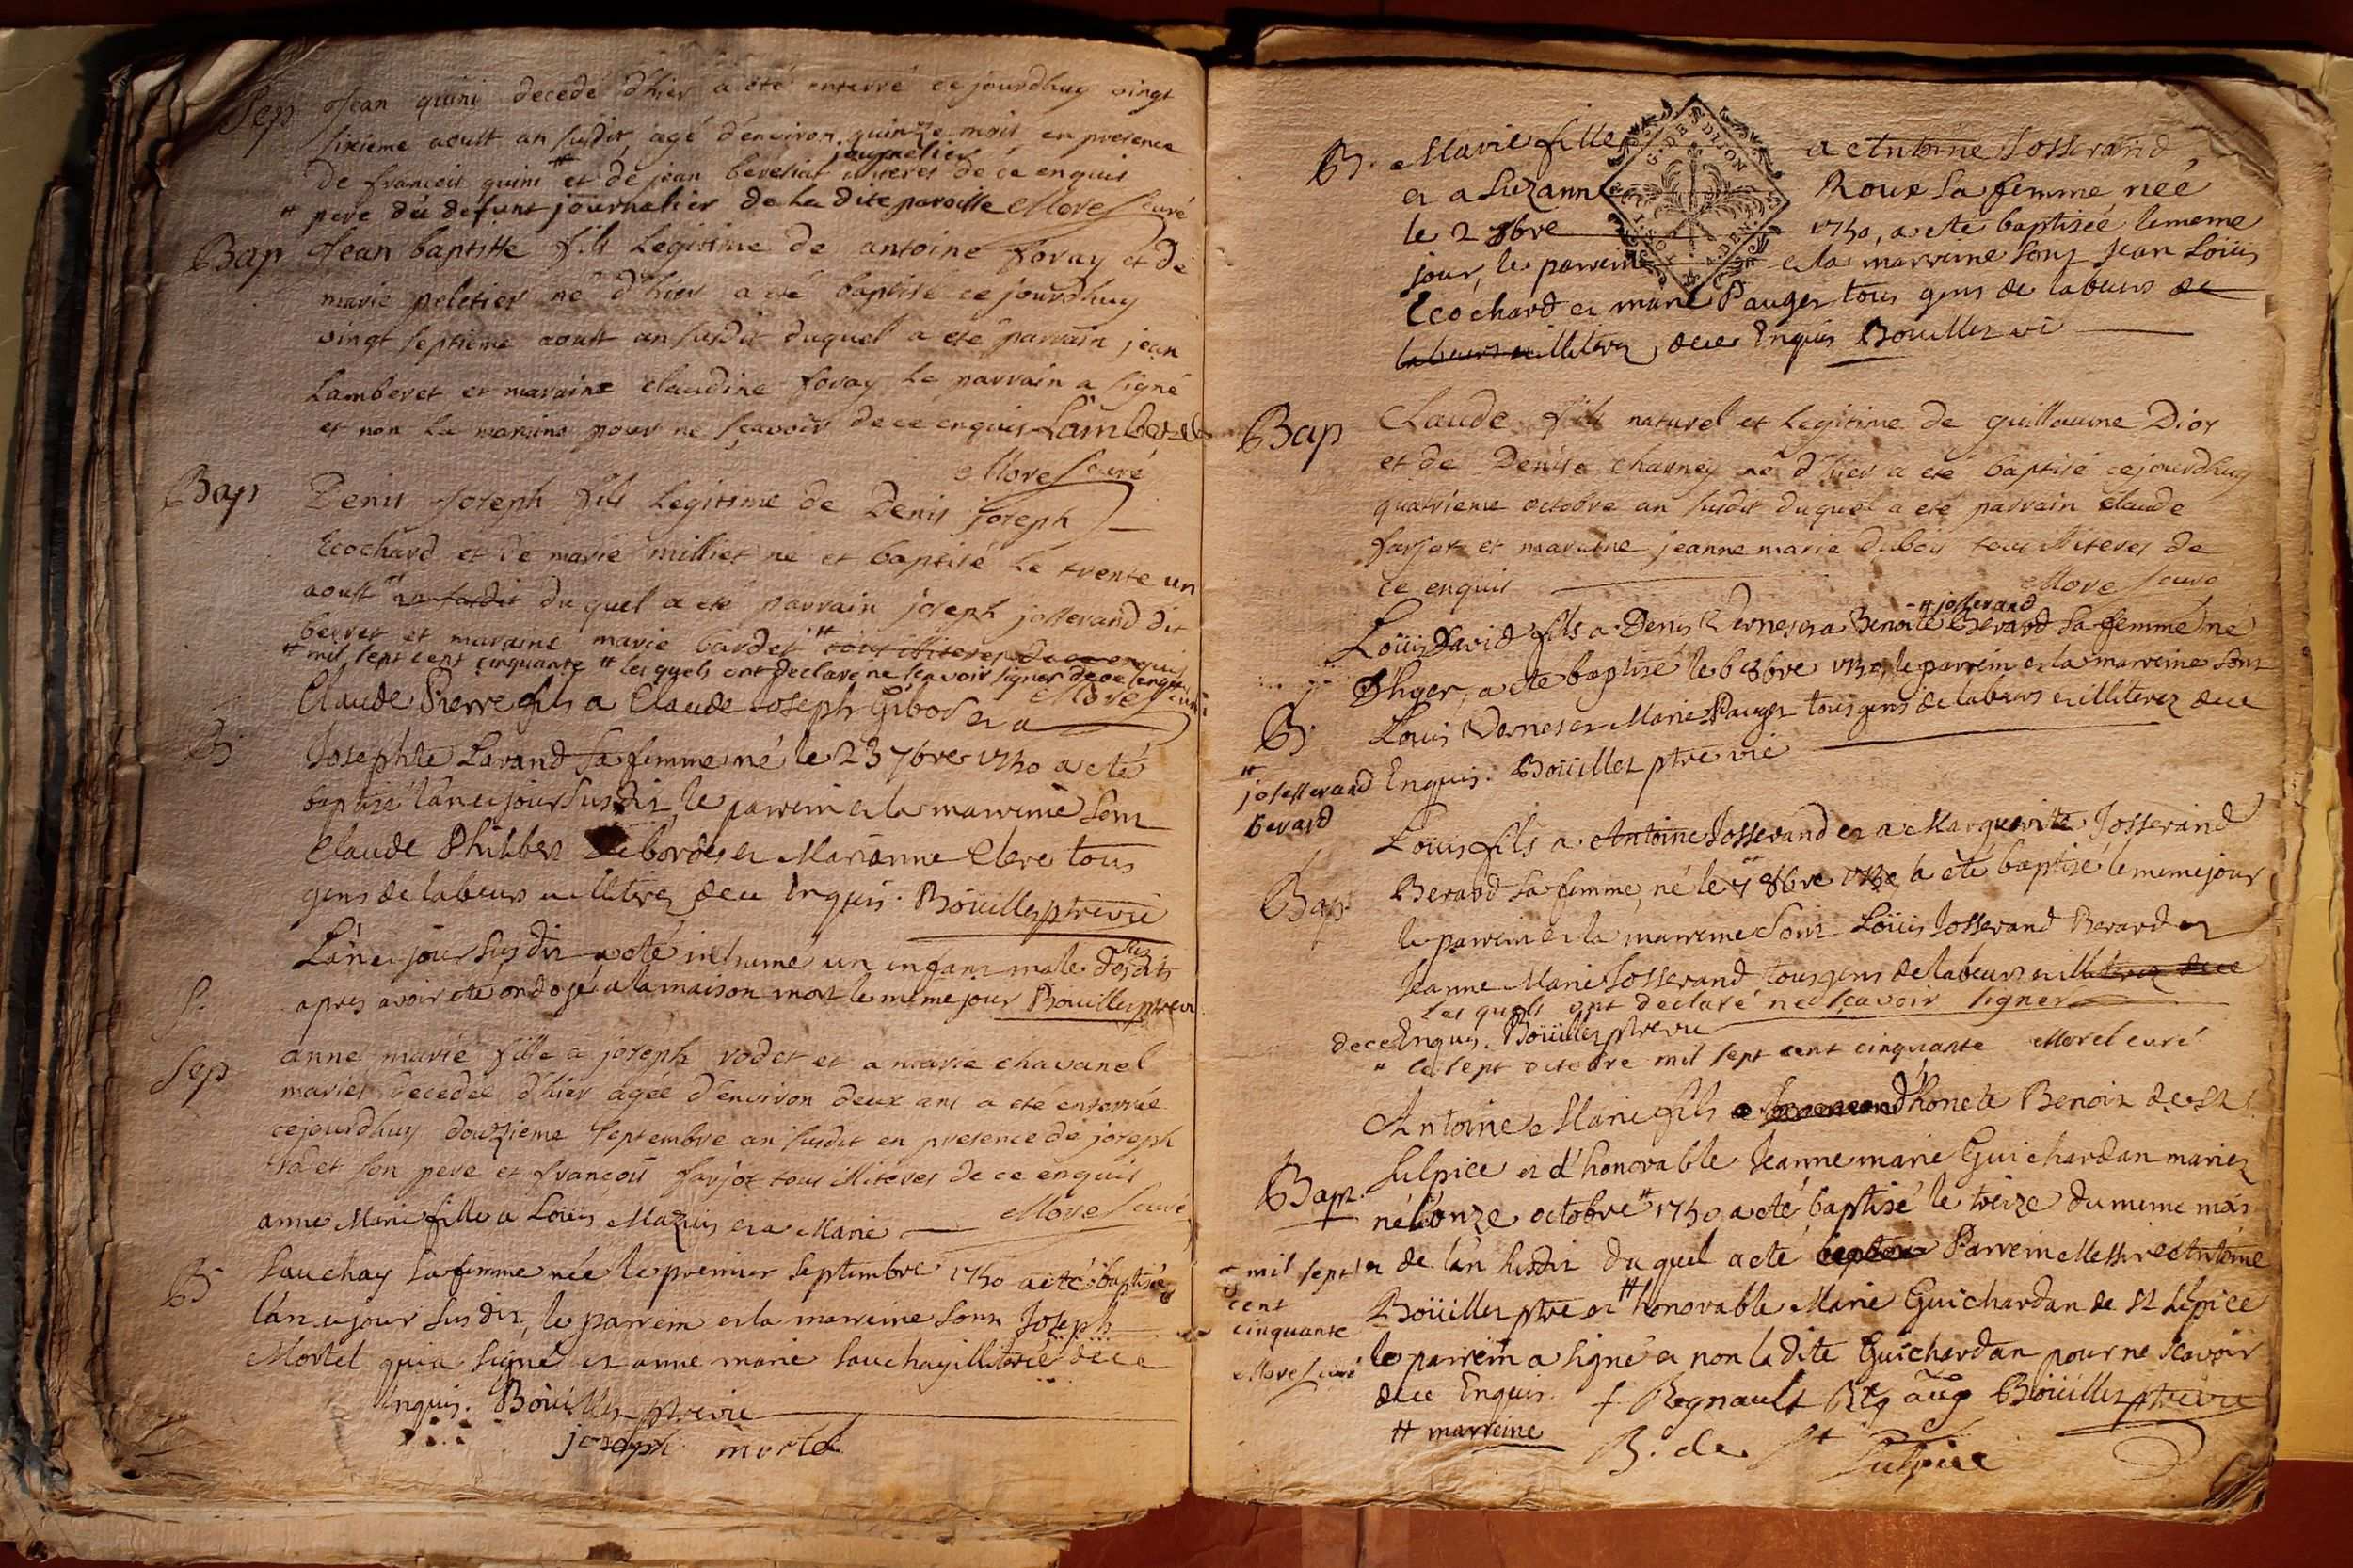 Sep Jean quini decedé d'hier a été enterré cejourdhuy vingt
sixieme aoust an susdit, agé d'environ quinze mois en presence
journalier
de francois quini # et de jean illiteres de ce enquis
# pere du defunt journalier de la dite paroisse Morel curé
Bap Jean baptiste fils legitime de antoine foray et de
marie peletier né d'hier a été baptisé cejourdhuy
vingt septieme aoust an susdit duquel a eté parrain jean
Lamberet et maraine claudine foray le parrain a signé
et non la maraine pour ne sçavoir de ce enquis Lamberet
Morel curé
Bap Denis Joseph fils legitime de Denis joseph
Ecochard et de marie milliet né et baptisé le trente un
aoust # an susdit duquel a eté parrain joseph josserand dit
berret et maraine marie bardet # tous illiteres de ce enquis
# mil sept cent cinquante # les quels ont declaré ne scavoir signer de ce enquis
Morel curé
B. Claude Pierre fils a Claude Joseph Gibos et a
Josephte Lavand sa femme né le 23 7bre 1750 a eté
baptisé l'an et jour susdit, le parrein et la marreine sont
Claude Philiber Debordes et Marianne Clere tous
gens de labeurs illiterez dece Enquis. Boüillet ptre vic
S. L'an et jour susdit a eté inhumé un enfant male desdits
apres avoir eté ondojé a la maison mort le meme jour Bouillet ptre vi
Sep anne marie fille a joseph rodet et a marie chavanel
mariés decedée d'hier agée d'environ deux ans a eté enterrée
cejourdhuy douzieme septembre an susdit en presence de joseph
rodet son pere et françois farjot tous illiteres de ce enquis
Morel curé
B anne Marie fille a Loüis Mazuis et a Marie
Sauchay sa femme née le premier Septembre 1750 a eté baptisée
l'an et jour susdit, le parrein et la marreine sont Joseph
Mortel qui a signé et anne marie Sauchay illiterée dece
Enquis. Boüillet ptre vic
joseph mortel
B. Marie fille a Antoine Josserand,
et a Suzanne Roux sa femme née
le 2 8bre 1750, a eté baptisée le meme
jour, le parrein et la marreine sont Jean Loüis
Ecochard et marie Pauget tous gens de labeurs de
labeurs et illiterez, dece Enquis Bouillet vi
G. DE DIJON
Bap Claude fils naturel et legitime de guillaume Dior
et de Denise charney né d'hier a eté baptisé cejourdhuy
quatrieme octobre an susdit duquel a eté parrain claude
farjot et maraine jeanne marie dubois tous illiteres de
ce enquis Morel curé
# josserand
B. Loüis David fils a Denis Vernes et a Benoite Berard sa femme né
d'hyer, a eté baptisé le 6 8bre 1750, le parrein et la marreine sont
Louis Vernes et Marie Pauget tous gens de labeurs et illiterez dece
Enquis. Boüillet ptre vic
#
josserand
berard
Bap. Louis fils a Antoine Josserand et a Marguerite Josserand
Berard sa femme, né le 7 # 8bre 1750 a eté baptisé le meme jour
le parrein et la marreine sont Loüis Josserand Berard et
Jeanne Marie Josserand, tous gens de labeurs et illiterez dece
les quels ont declaré ne sçavoir signer
dece Enquis. Boüillet ptre vic
# le sept octobre mil sept cent cinquante Morel curé
Bapt. Antoine Marie fils d'honete Benoit de St
Sulpice et d'honorable Jeanne marie Guichardan mariez
né l'onze octobre # 1750 a eté baptisé le treize du meme mois
et de l'an susdit duquel a eté Parrein Messire Antoine
Boüillet ptre et # honorable Marie Guichardan de St Sulpice
le parrein a signé et non la dite Guichardan pour ne scavoir
dece Enquis. f Regnault Rlg aug Boüillet ptre vic
# marreine B. de St Sulpice
# mil sept
cent
cinquante
Morel curé